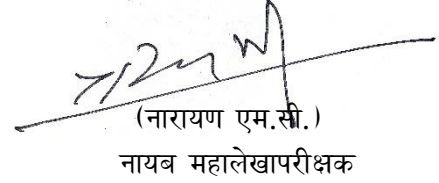 (नारायण एम.सी.)
नायब महालेखापरीक्षक